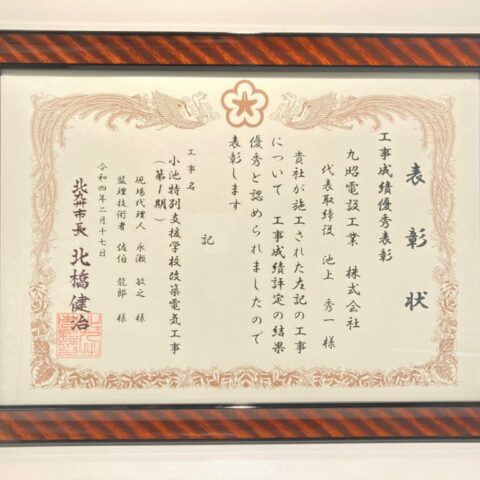 表彰状
工事成績優秀表彰
九昭電設工業 株式会社
代表取締役 池上 秀一 様
貴社が施工された左記の工事
について 工事成績評定の結果
優秀と認められましたので
表彰します
記
工事名
小池特別支援学校改築電気工事
(第1期)
現場代理人 永瀬 敏之 様
監理技術者 佐伯 龍郎 様
令和四年二月十七日
北九州市長 北橋健治